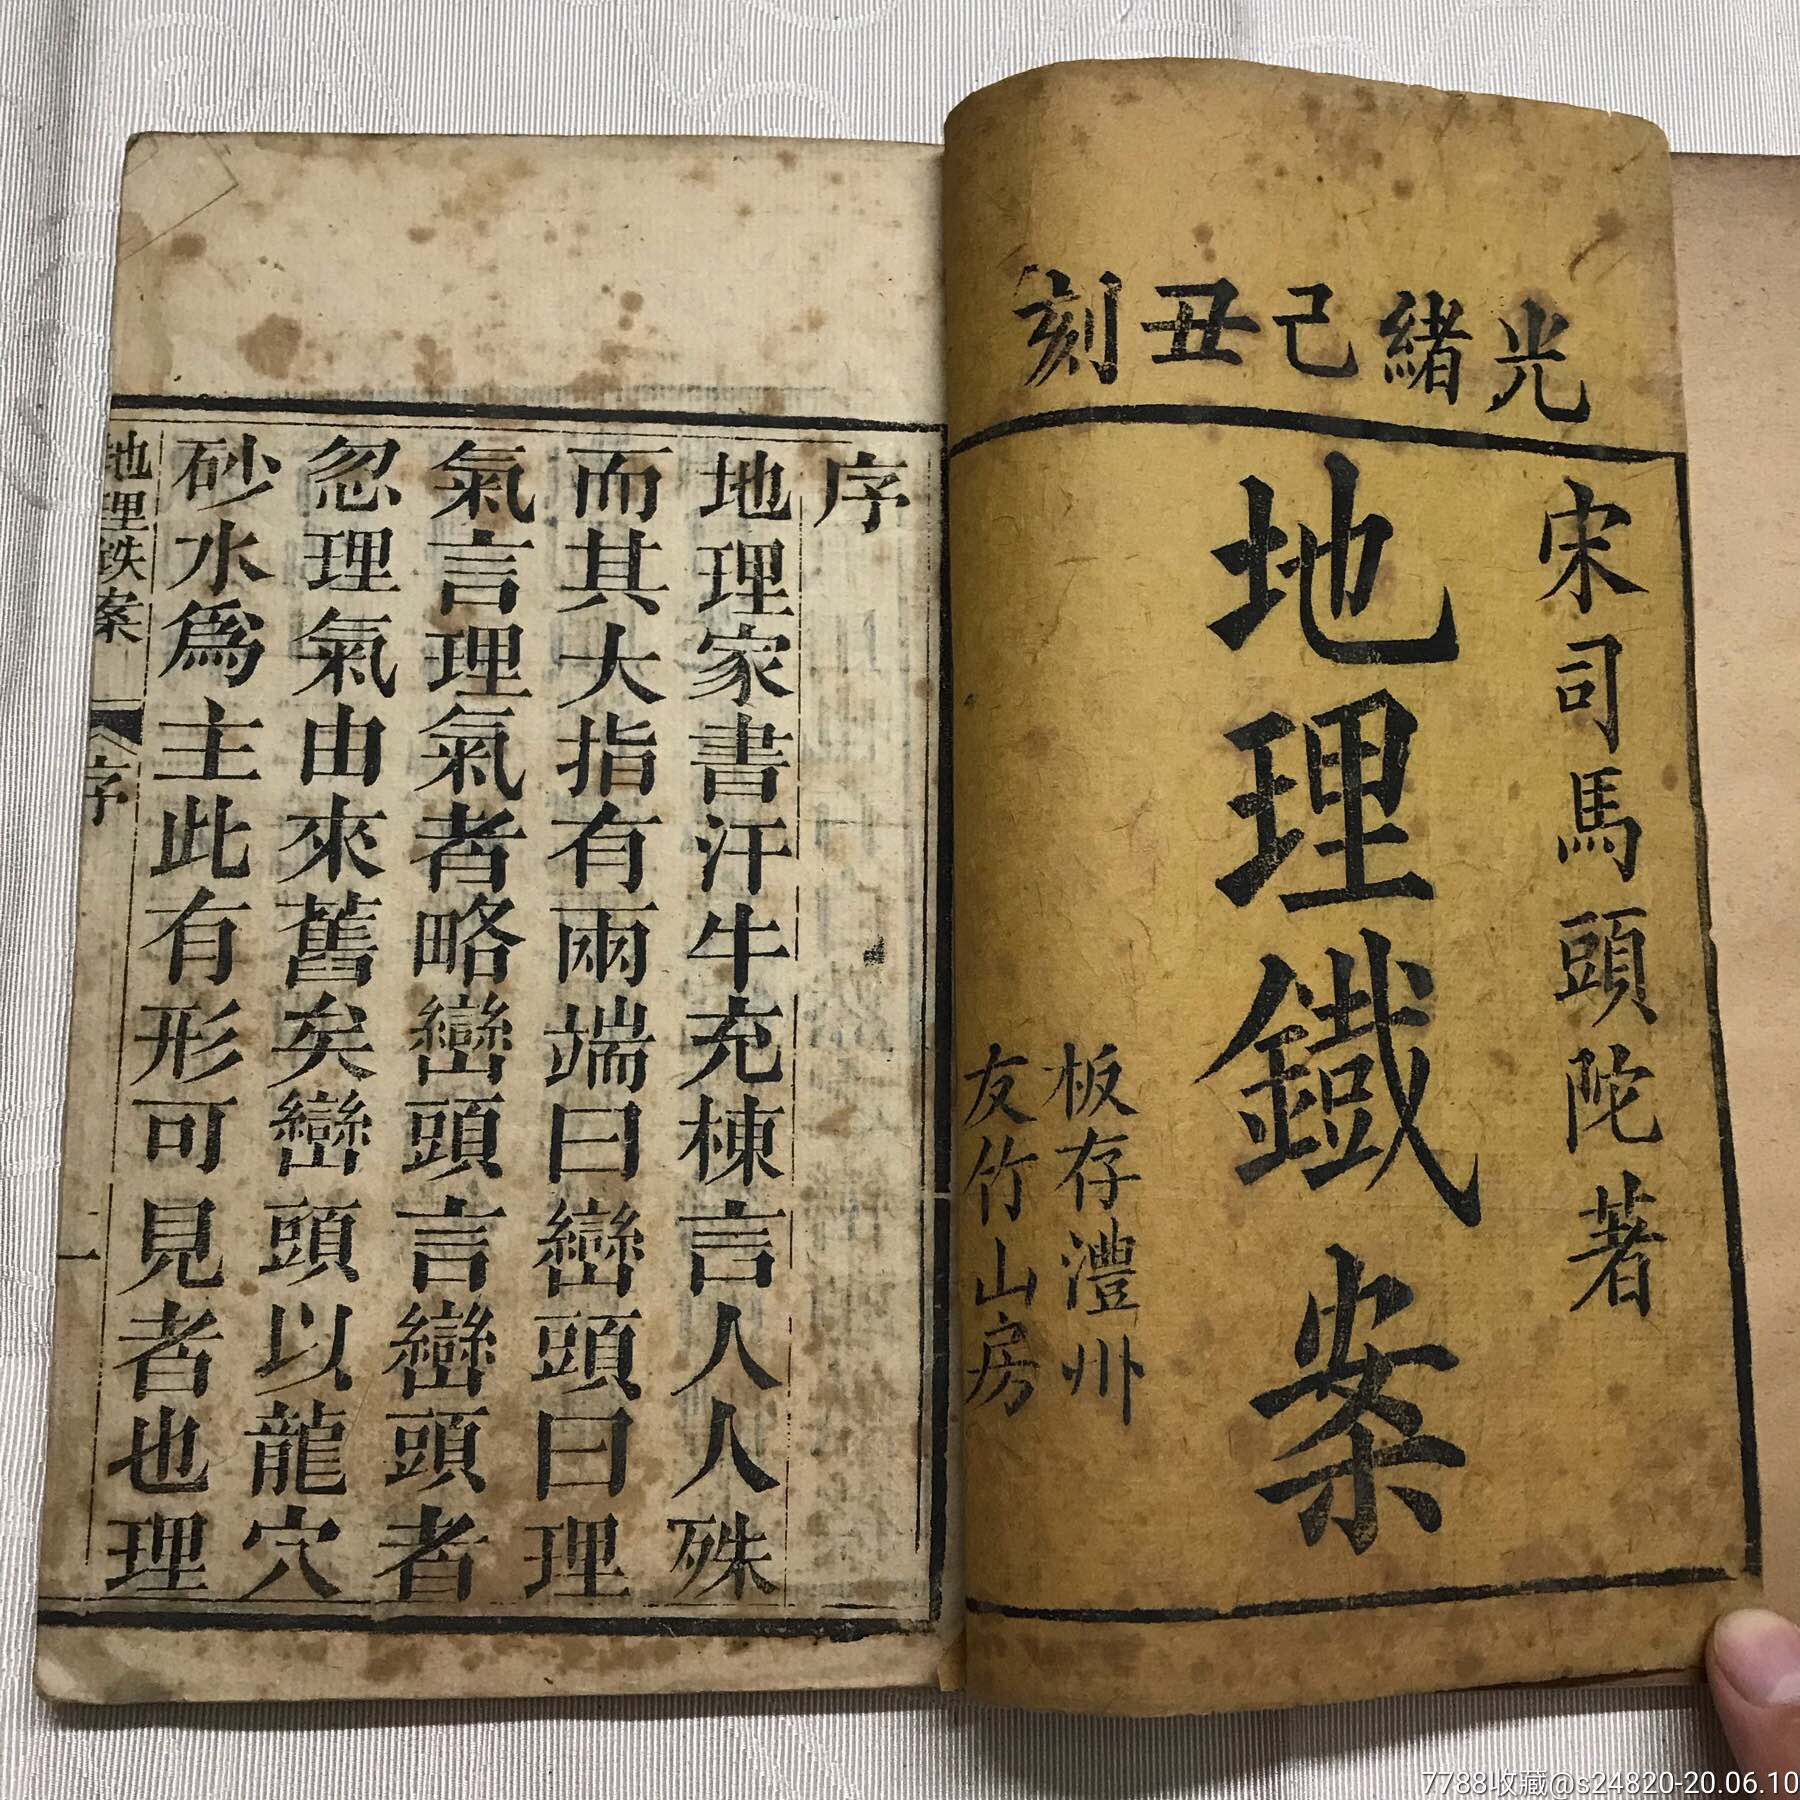 光緒己丑刻
宋司馬頭陀著
地理鐵案
板存澧州
友竹山房
序
地理家書汗牛充棟言人人殊
而其大指有兩端曰巒頭曰理
氣言理氣者略巒頭言巒頭者
忽理氣由來舊矣巒頭以龍穴
砂水爲主此有形可見者也理
地理鉄案 序 一
7788收藏@s24820-20.06.10